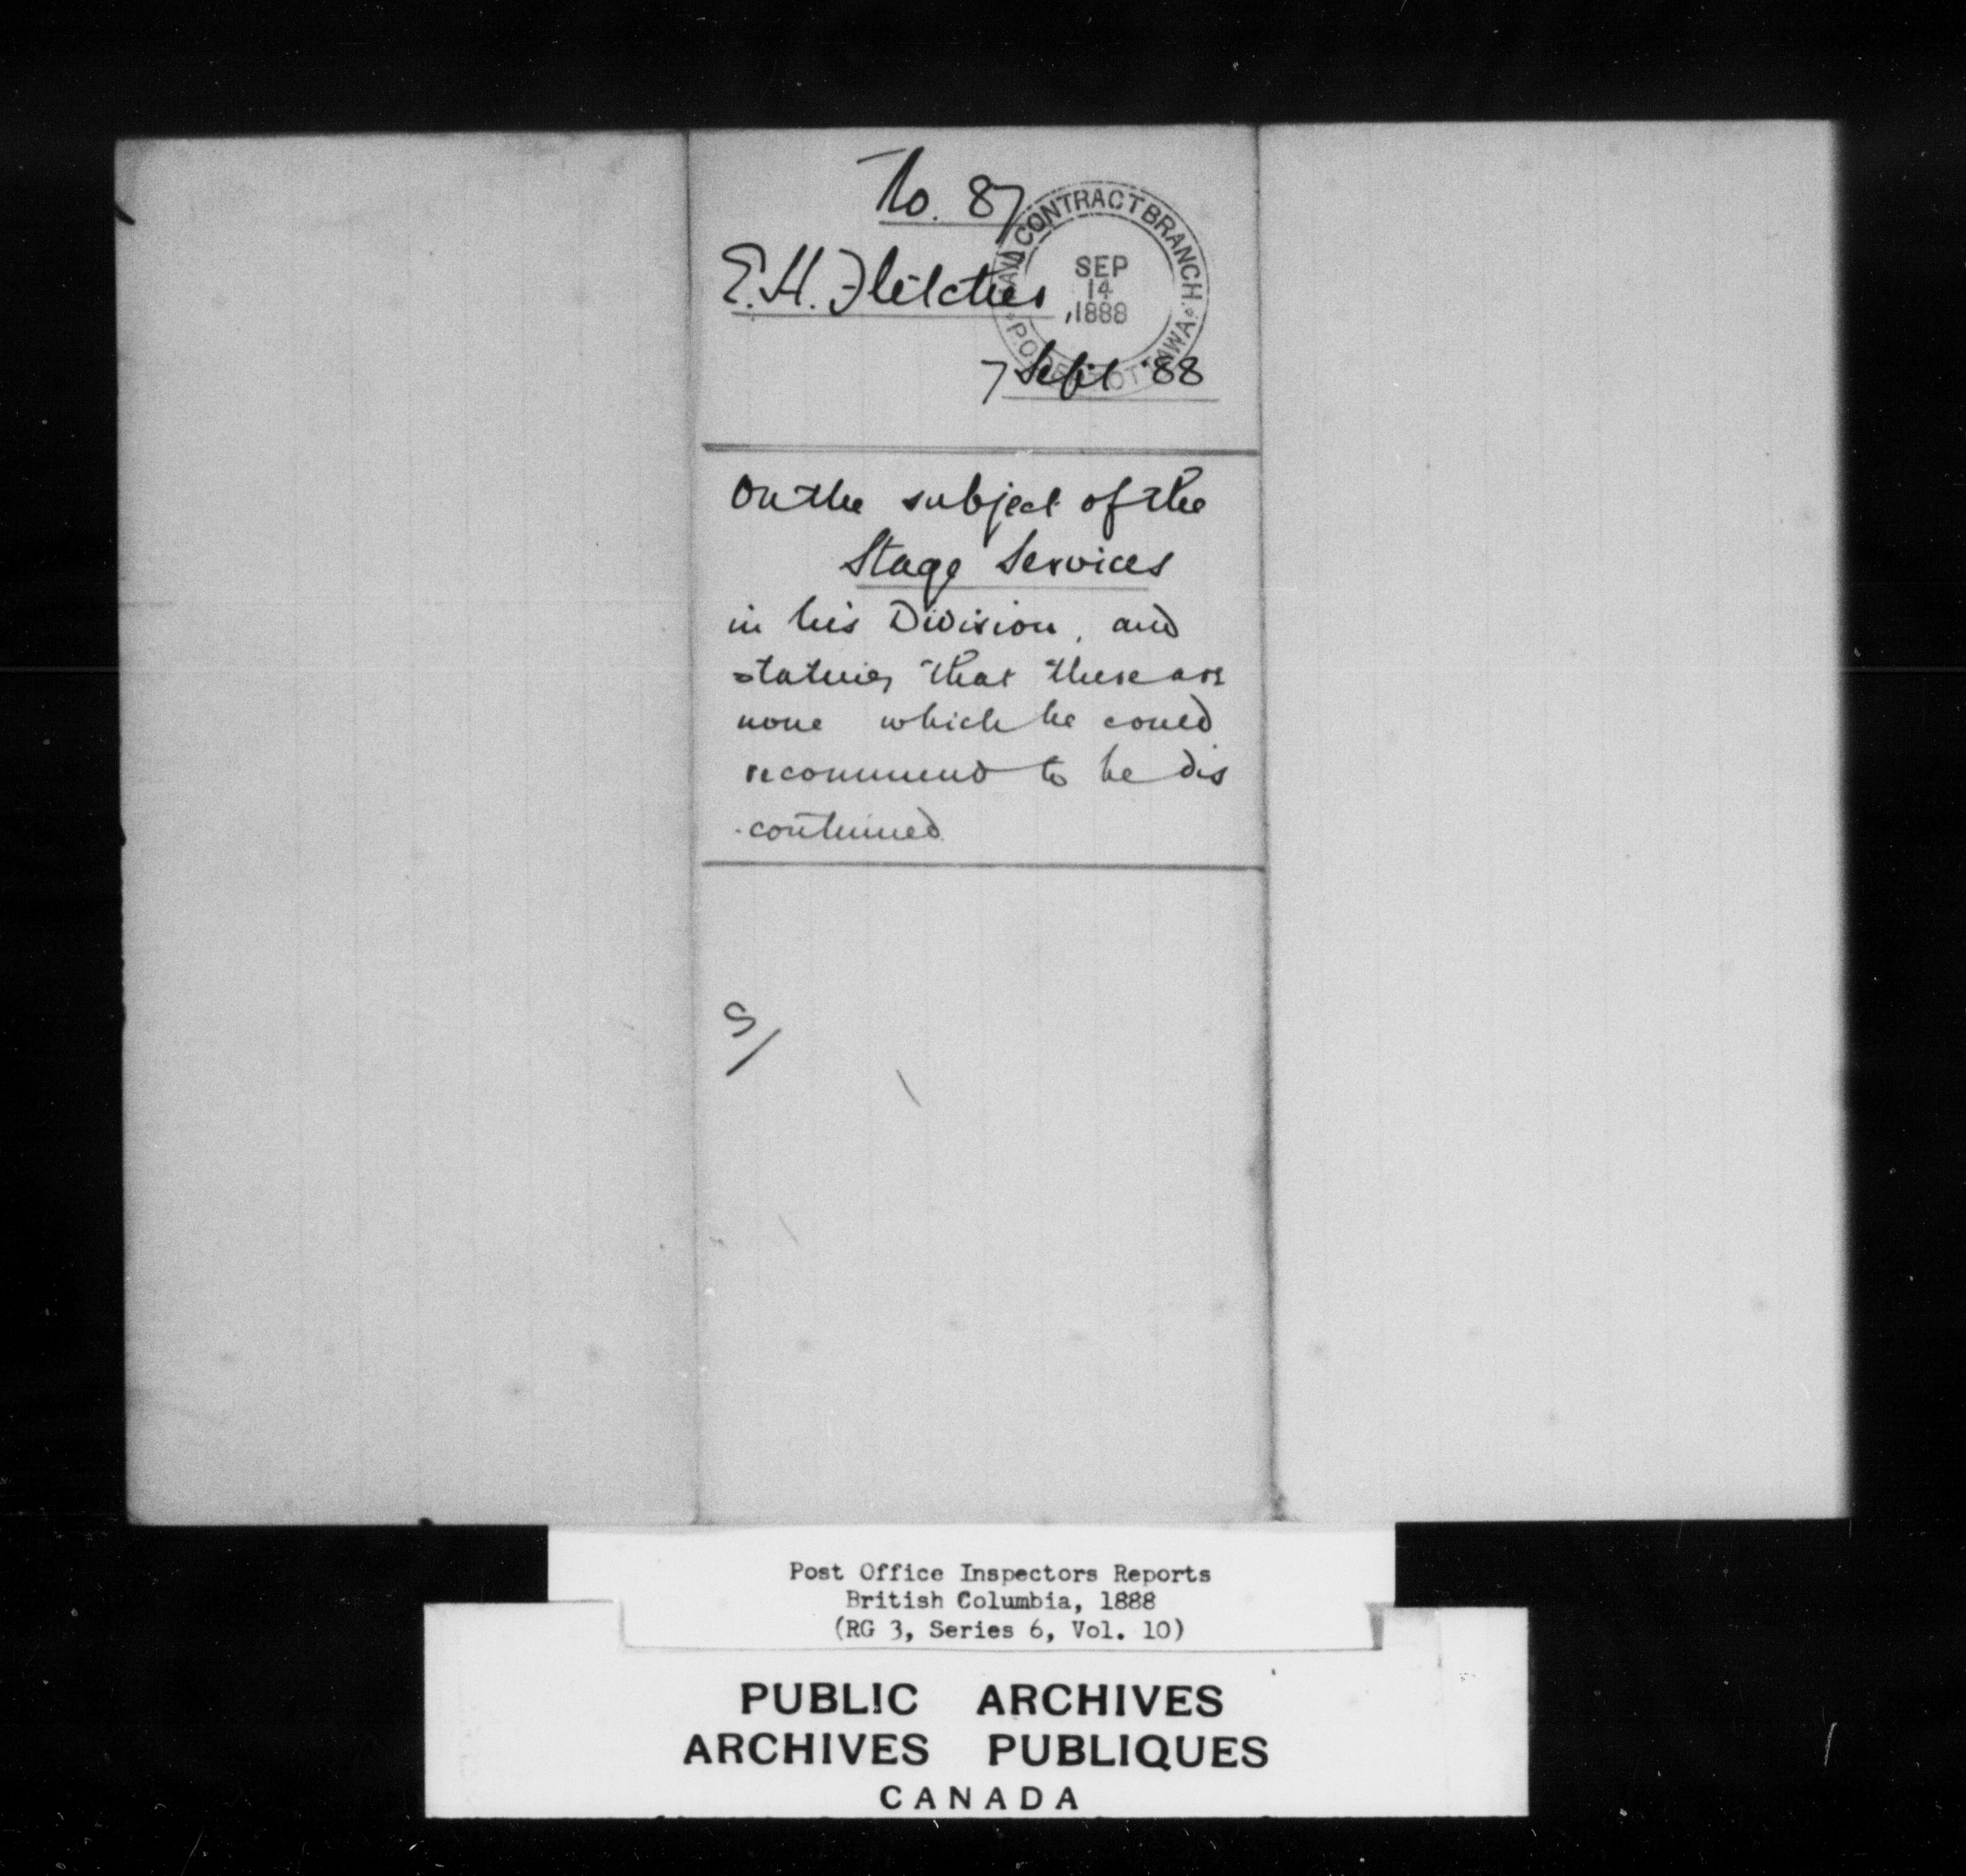 No. 87
MAIL CONTRACT BRANCH.
P.O. DEPT OTTAWA.
SEP
14
1888
E. H. Fletcher
7 Sept '88
On the subject of the
Stage Services
in his Division, and
stating that there are
none which he could
recommend to be dis
-continued
Post Office Inspectors Reports
British Columbia, 1888
(RG 3, Series 6, Vol. 10)
PUBLIC ARCHIVES
ARCHIVES PUBLIQUES
CANADA